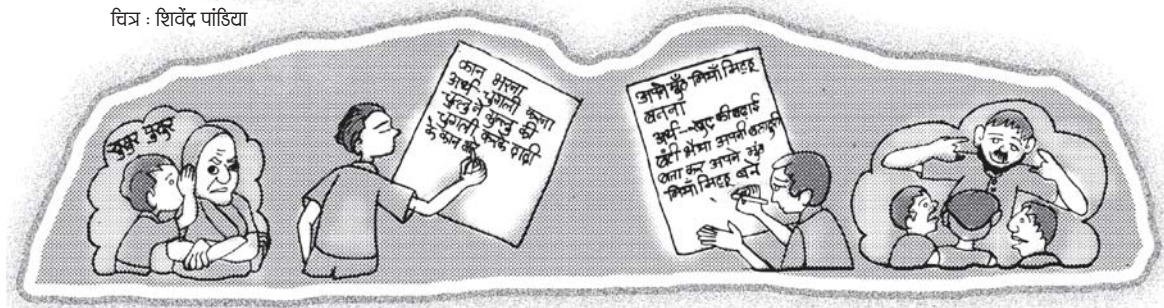 चित्र : शिवेंद्र पांडिया
खुसुर पुसुर
कान भरना
अर्थ-चुगली करना
चुगली करके दादी
के कान भरे
अपने मुँह मियाँ मिट्ठू
बनना
अर्थ-खुद की बड़ाई
भैया अपनी बहादुरी
बता कर अपने मुँह
मियाँ मिट्ठू बने